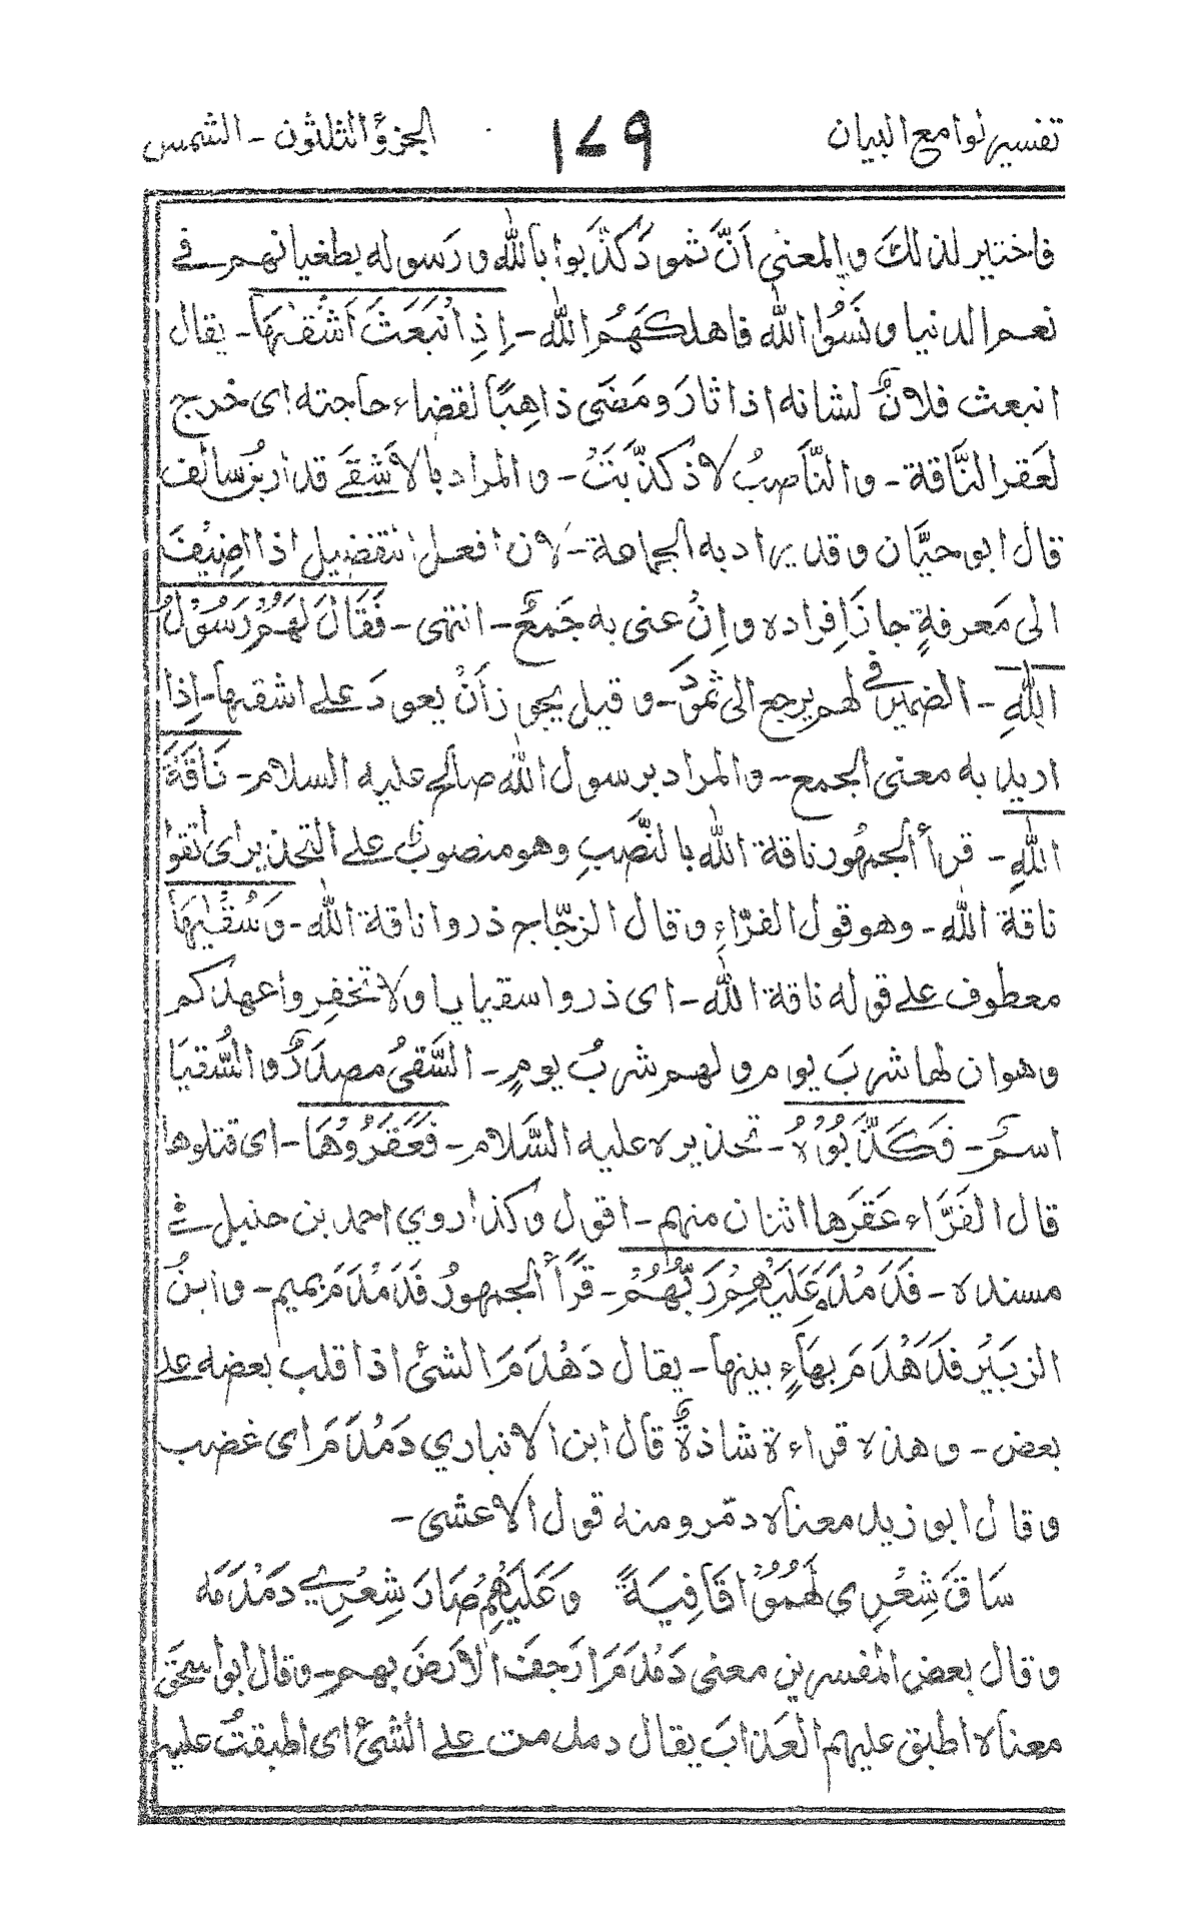 تفسير لوامع البيان ١٧٩ الجزؤ الثلثون - الشمس
فاختير لذلك والمعنى اَنَّ ثمودَ كذَّبوا بالله ورَسوله بطغيانهم فى
نعم الدنيا ونَسُوا الله فاهلكهُم الله - اِذِ انْبَعَثَ اَشْقٰىهَا - يقال
انبعث فلانٌ لشانه اذا ثارَ ومَضَى ذاهِبًا لقضاء حاجته اى خرج
لعَقر النَّاقة - والنَّاصبُ لاذ كذَّبَتْ - والمراد بالاَشقَى قدار بنُ سالف
قال ابو حيَّان وقد يراد به الجماعة - لان افعل التفضيل اذا اضِيْفَ
الى مَعرفةٍ جازَ اِفراده واِنْ عنى به جَمعٌ - انتهى - فَقَالَ لَهُمْ رَسُوْلُ
اللهِ - الضمير فى لهم يرجع الى ثمودَ - وقيل يجوز أَنْ يعودَ على اشقٰها - اِذا
اريد به معنى الجمع - والمراد برسول الله صالح عليه السلام - نَاقَةَ
اللهِ - قرأ الجمهُور ناقة الله بالنَّصبِ وهو منصوبٌ على التحذير اى اتقوا
ناقة الله - وهو قول الفرّاءِ وقال الزجّاج ذروا ناقة الله - وَسُقْيٰهَا
معطوف على قوله ناقة الله - اى ذروا سقياها ولا تخفِروا عهدكم
وهو ان لها شربَ يوم ولهم شربُ يومٍ - السَّقىُ مصدَرٌ والسُّقيَا
اسمٌ - فَكَذَّبُوْهُ - تحذيره عليه السَّلام - فَعَقَرُوْهَا - اى قتلوها
قال الفَرَّاء عَقَرها اثنان منهم - اقول وكذا روي احمد بن حنبل فى
مسنده - فَدَمْدَمَ عَلَيْهِمْ رَبُّهُمْ - قَرَأَ الجمهورُ فَدَمْدَمَ بميم - وابنُ
الزبَيْر فَدَهْدَمَ بهَاءٍ بينها - يقال دَهْدَمَ الشئ اذا قلب بعضه على
بعض - وهذه قراءة شاذةٌ قال ابن الانباري دَمْدَمَ اى غضب
وقال ابو زيد معناه دمّر ومنه قول الاعشى -
سَاقَ شِعْرِى لَهُمُوْا قَافِيَةً وَعَلَيْهِمْ صَارَ شِعْرِيْ دَمْدَمَه
وقال بعض المفسرين معنى دَمْدَمَ ارَجفَ الاَرضَ بهم - وقال ابو اسحٰق
معناه اطبق عليهم العَذابَ يقال دمدمت على الشئ اى اطبقتُ عليه